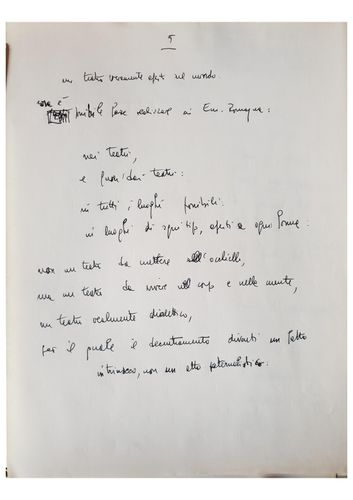 5
un teatro veramente aperto nel mondo.
cosa è possibile fare realizzare in Em. Romagna:
nei teatri,
e fuori dai teatri:
in tutti i luoghi possibili:
in luoghi di ogni tipo, aperti a ogni forma:
non un teatro da mettere all'occhiello,
ma un teatro da vivere nel corpo e nella mente,
un teatro realmente dialettico,
per il quale il decentramento diventi un fatto
intrinseco, non un atto paternalistico.